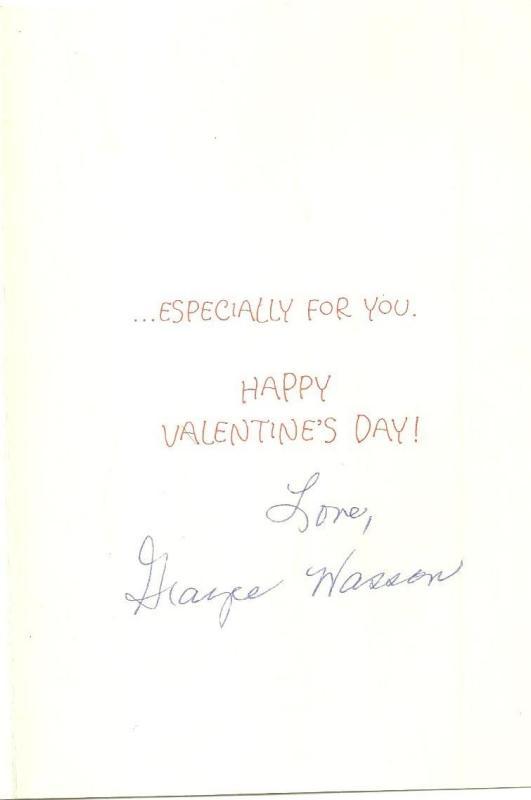 ...ESPECIALLY FOR YOU.
HAPPY
VALENTINE'S DAY!
Love,
Wasson